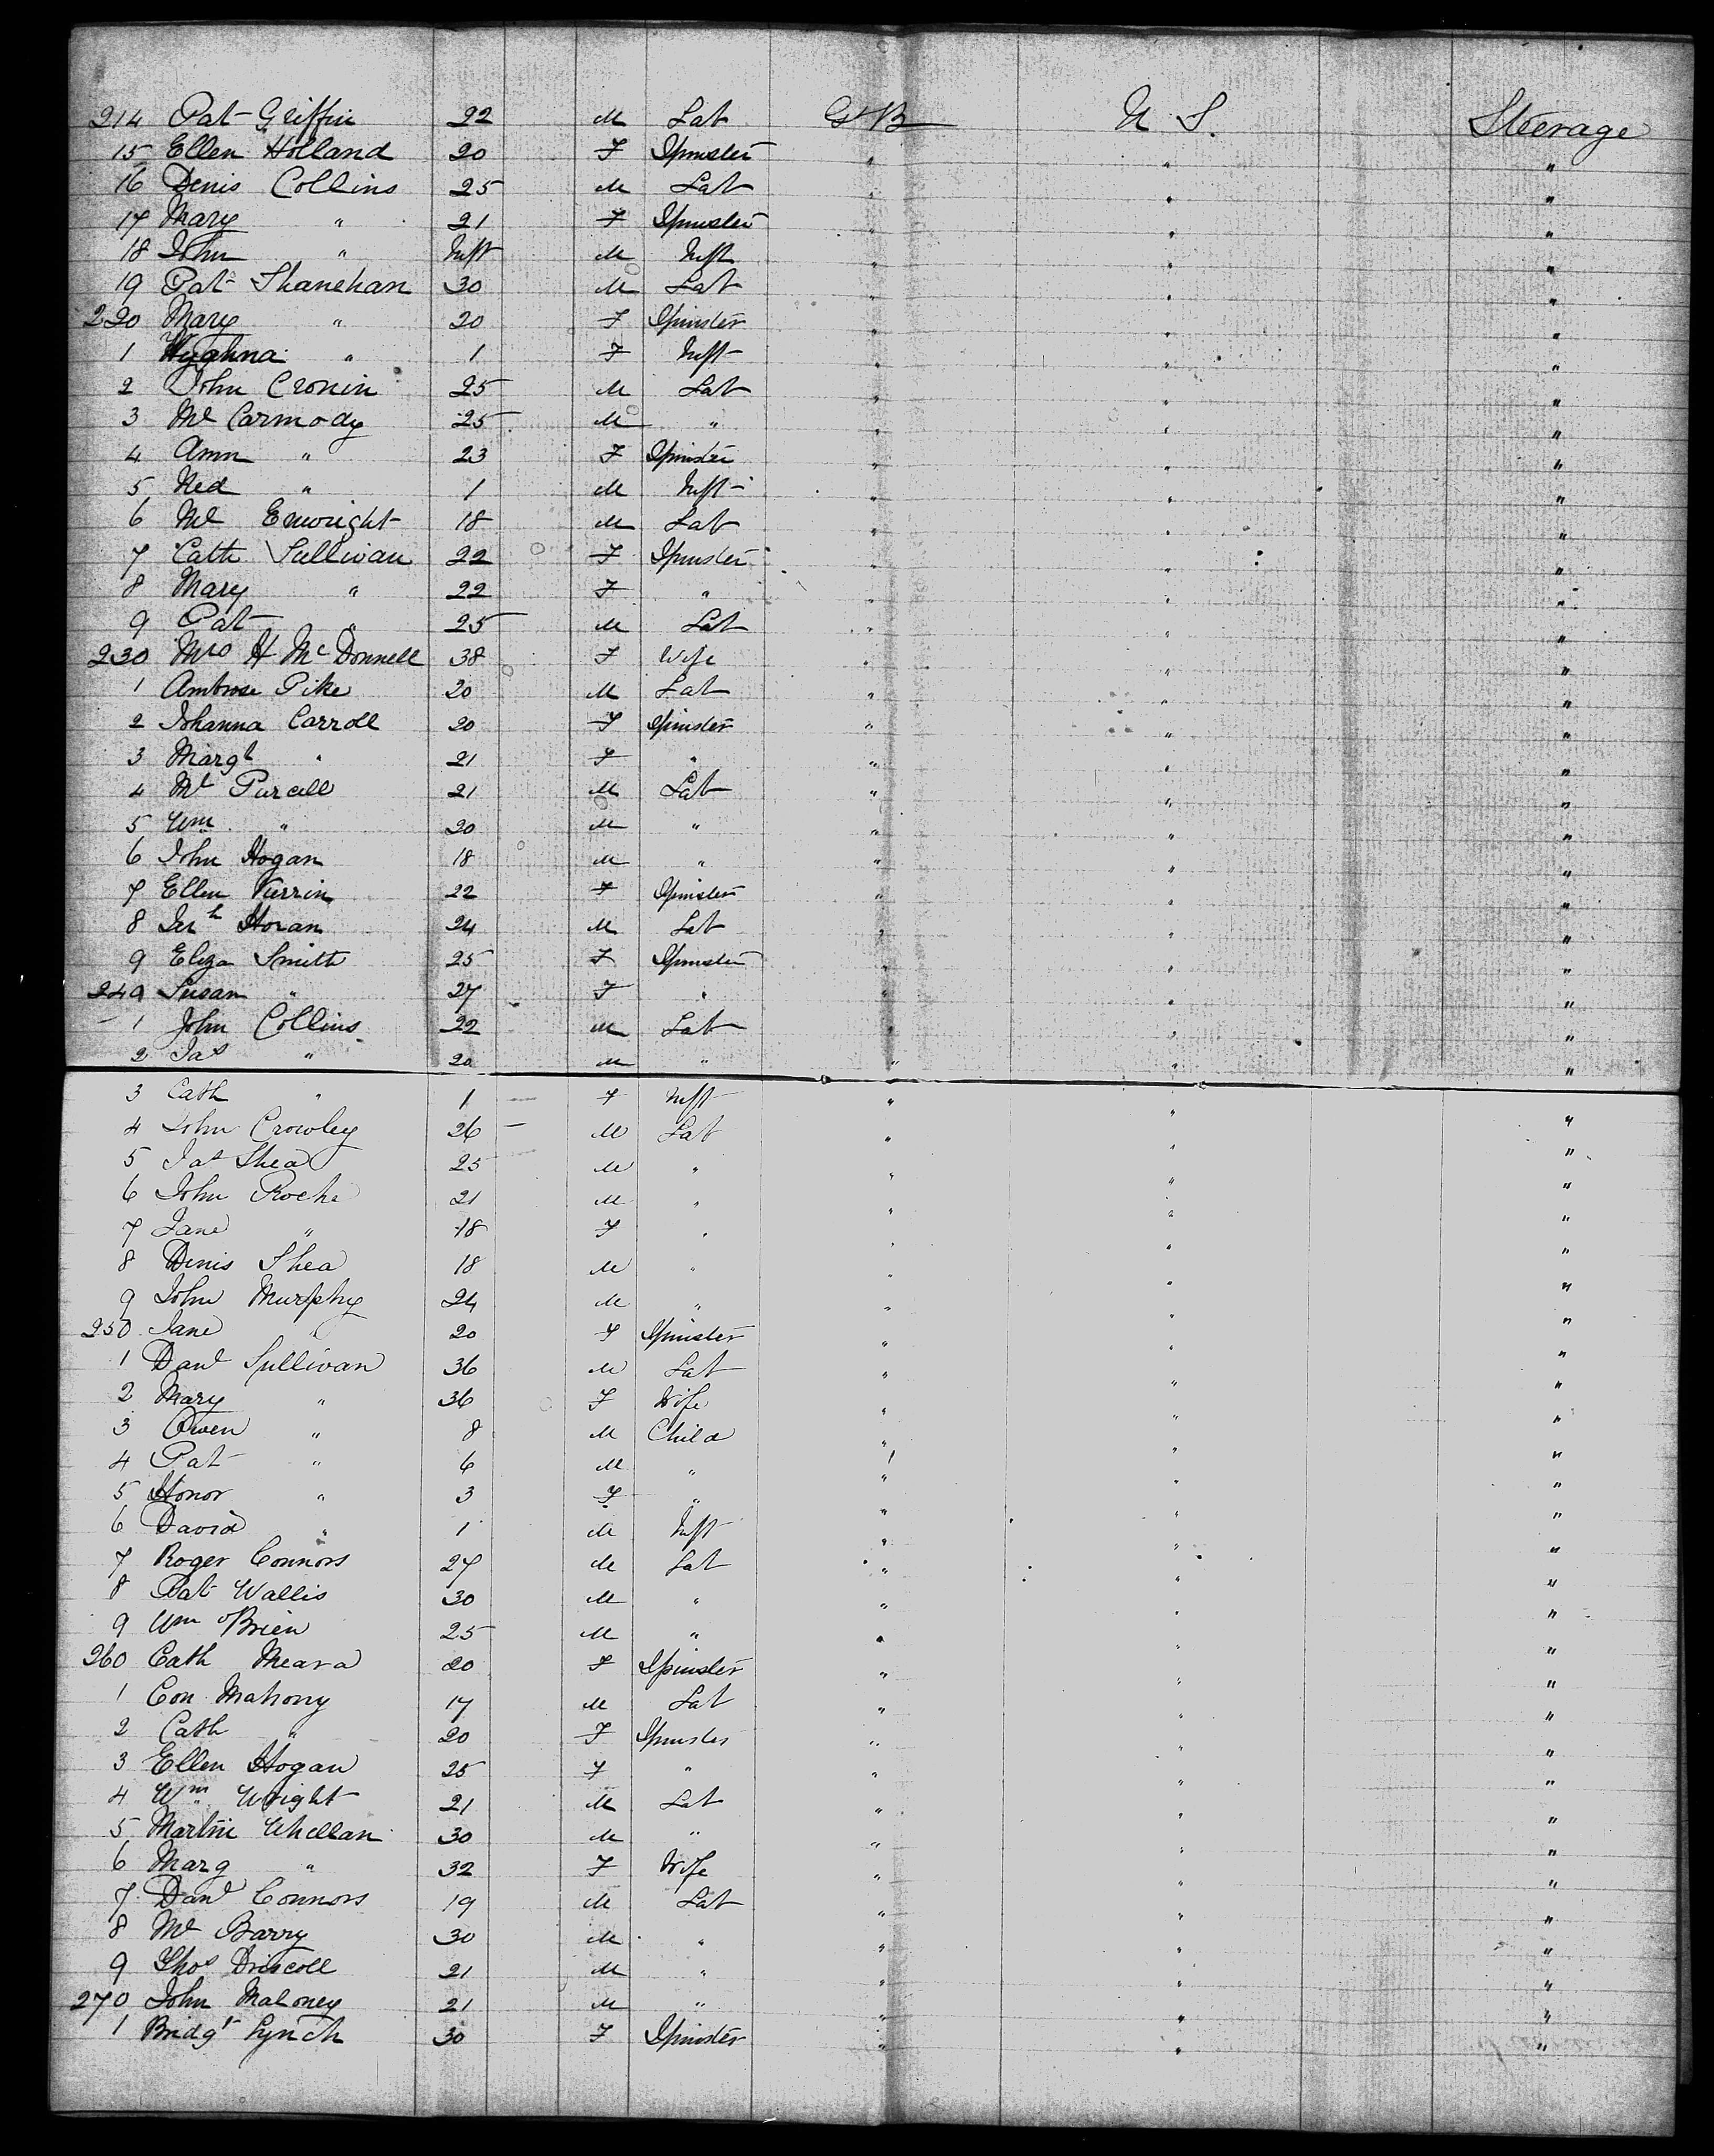 214 Pat Griffin 22 M Lab Gt B U S. Steerage
15 Ellen Holland 20 F Spinster " " "
16 Denis Collins 25 M Lab " " "
17 Mary " 21 F Spinster " " "
18 John " Inft M Inft " " "
19 Pat Shanehan 30 M Lab " " "
220 Mary " 20 F Spinster " " "
1 " 1 F Inft " " "
2 John Cronin 25 M Lab " " "
3 Ml Carmody 25 M " " " "
4 Ann " 23 F Spinster " " "
5 Ned " 1 M Inft " " "
6 Ml Enwright 18 M Lab " " "
7 Cath Sullivan 22 F Spinster " " "
8 Mary " 22 F " " " "
9 Pat " 25 M Lab " " "
230 Mrs H McDonnell 38 F Wife " " "
1 Ambrose Pike 20 M Lab " " "
2 Johanna Carroll 20 F Spinster " " "
3 Margt " 21 F " " " "
4 Ml Purcell 21 M Lab " " "
5 Wm " 20 M " " " "
6 John Hogan 18 M " " " "
7 Ellen 22 F Spinster " " "
8 Jerh Horan 24 M Lab " " "
9 Eliza Smith 25 F Spinster " " "
240 Susan " 27 F " " " "
1 John Collins 22 M Lab " " "
2 Jas " 20 M " " " "
3 Cath " 1 F Inft " " "
4 John Crowley 26 M Lab " " "
5 Jas Shea 25 M " " " "
6 John Roche 21 M " " " "
7 Jane " 18 F " " " "
8 Denis Shea 18 M " " " "
9 John Murphy 24 M " " " "
250 Jane " 20 F Spinster " " "
1 Danl Sullivan 36 M Lab " " "
2 Mary " 36 F Wife " " "
3 Owen " 8 M Child " " "
4 Pat " 6 M " " " "
5 Honor " 3 F " " " "
6 David " 1 M Inft " " "
7 Roger Connors 27 M Lab " " "
8 Pat Wallis 30 M " " " "
9 Wm OBrien 25 M " " " "
260 Cath Meara 20 F Spinster " " "
1 Con Mahony 17 M Lab " " "
2 Cath " 20 F Spinster " " "
3 Ellen Hogan 25 F " " " "
4 Wm Wright 21 M Lab " " "
5 Martin Whellan 30 M " " " "
6 Marg " 32 F Wife " " "
7 Danl Connors 19 M Lab " " "
8 Ml Barry 30 M " " " "
9 Thos Driscoll 21 M " " " "
270 John Maloney 21 M " " " "
1 Bridgt Lynch 30 F Spinster " " "